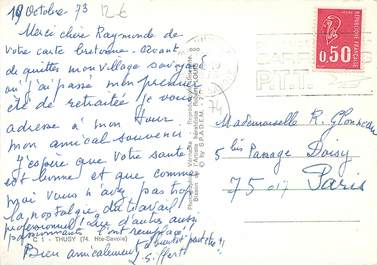 19 Octobre 73 12€
Merci chère Raymonde de
votre carte bretonne. Avant
de quitter mon village savoyard
où j'ai passé mon premier
été de retraitée je vous
adresse à mon tour
mon amical souvenir.
J'espère que votre santé
est bonne et que comme
moi vous n'avez pas trop
la nostalgie du travail
professionnel que d'autres aussi
passionnants l'ont remplacé!
Bien amicalement
C. 1 - THUSY (74. Hte-Savoie)
© by S.P.A.D.E.M.
0,50
REPUBLIQUE FRANÇAISE
POSTES
Mademoiselle R.
5 bis Passage Doisy
75017 Paris